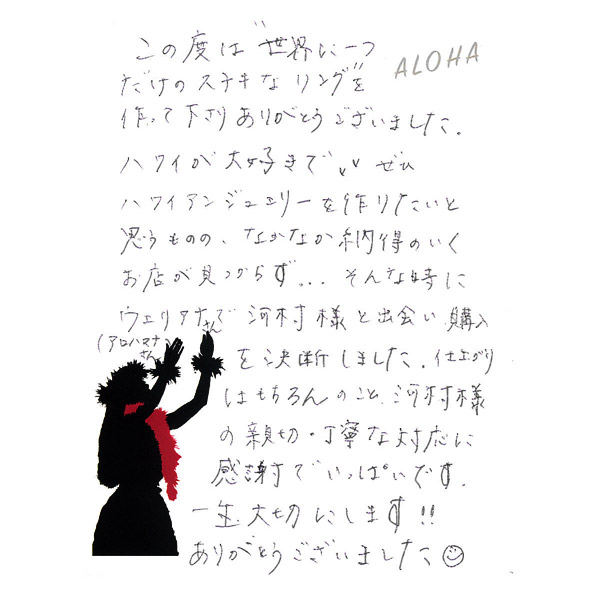 この度は“世界に一つ
だけのステキなリング”を
ALOHA
作って下さりありがとうございました。
ハワイが大好きで、、ぜひ
ハワイアンジュエリーを作りたいと
思うものの、なかなか納得のいく
お店が見つからず... そんな時に
ウェリアナさんで河村様と出会い、購入
(アロハマナさん)
を決断しました。仕上がり
はもちろんのこと、河村様
の親切・丁寧な対応に
感謝でいっぱいです。
一生大切にします!!
ありがとうございました☺